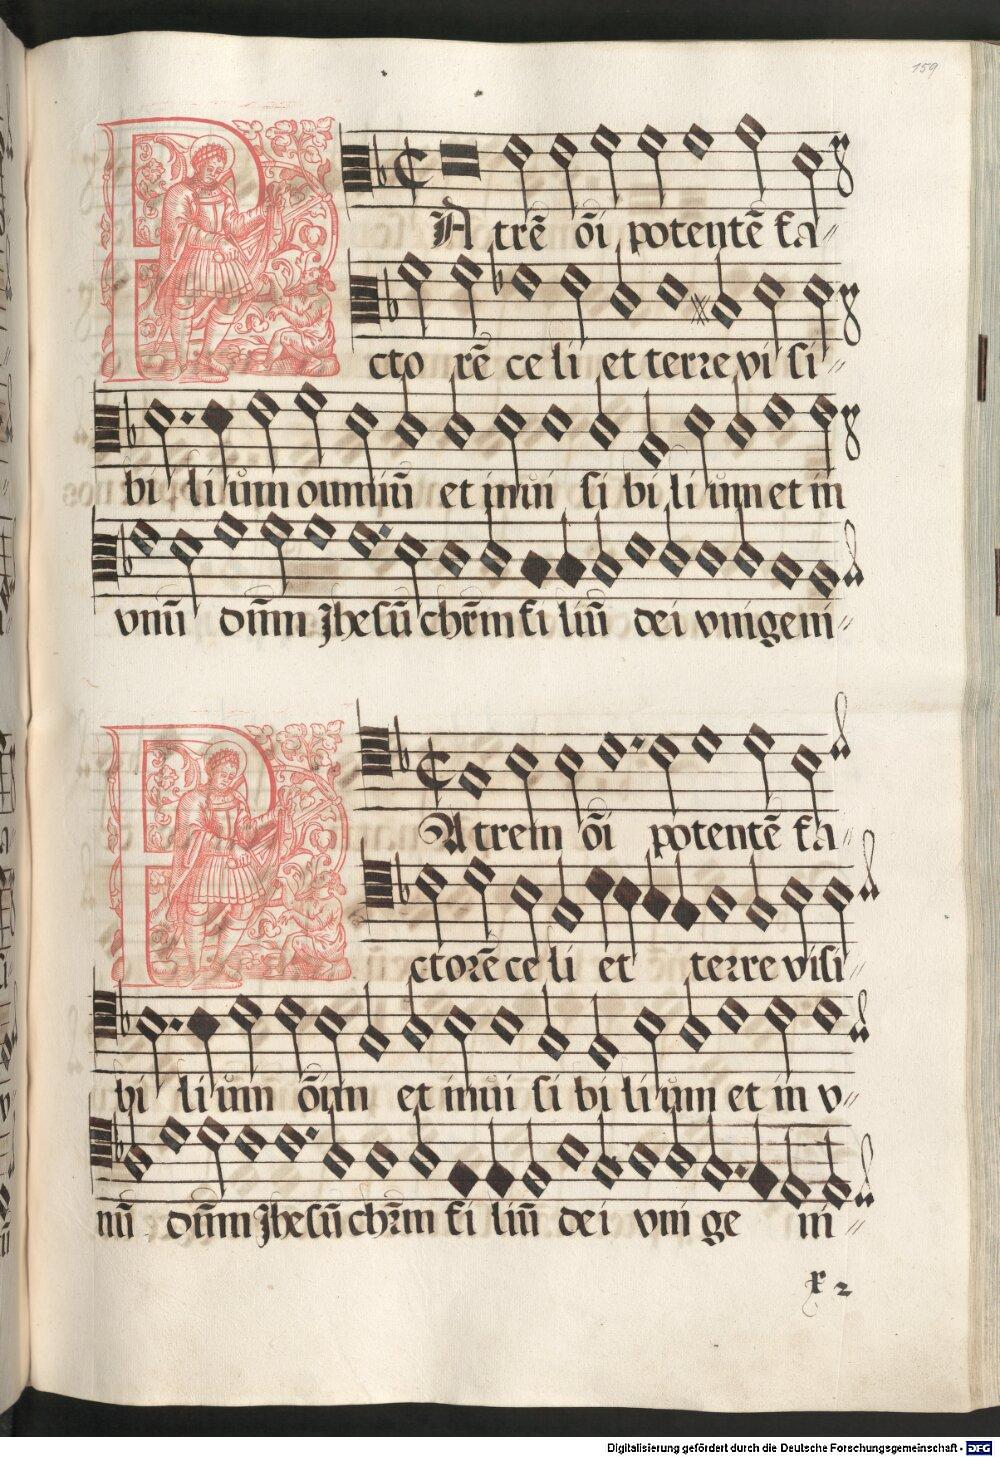 159
PAtrē oī potentē fa〃
ctorē celi et terre visi〃
bilium oumiū et inuisibilium et in
vnū dūm Jhesū chr̄m filiū dei vnigeni〃
PAtrem oī potentē fa〃
ctorē celi et terre visi〃
bilium oīm et inuisibilium et in v〃
nū dūm Jhesū chr̄m filiū dei vnigeni〃
x 2
Digitalisierung gefördert durch die Deutsche Forschungsgemeinschaft - DFG